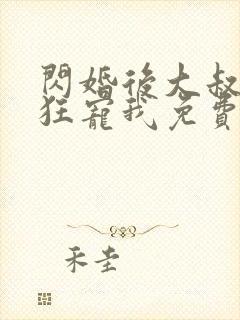 閃婚後大叔
狂寵我免費
禾圭